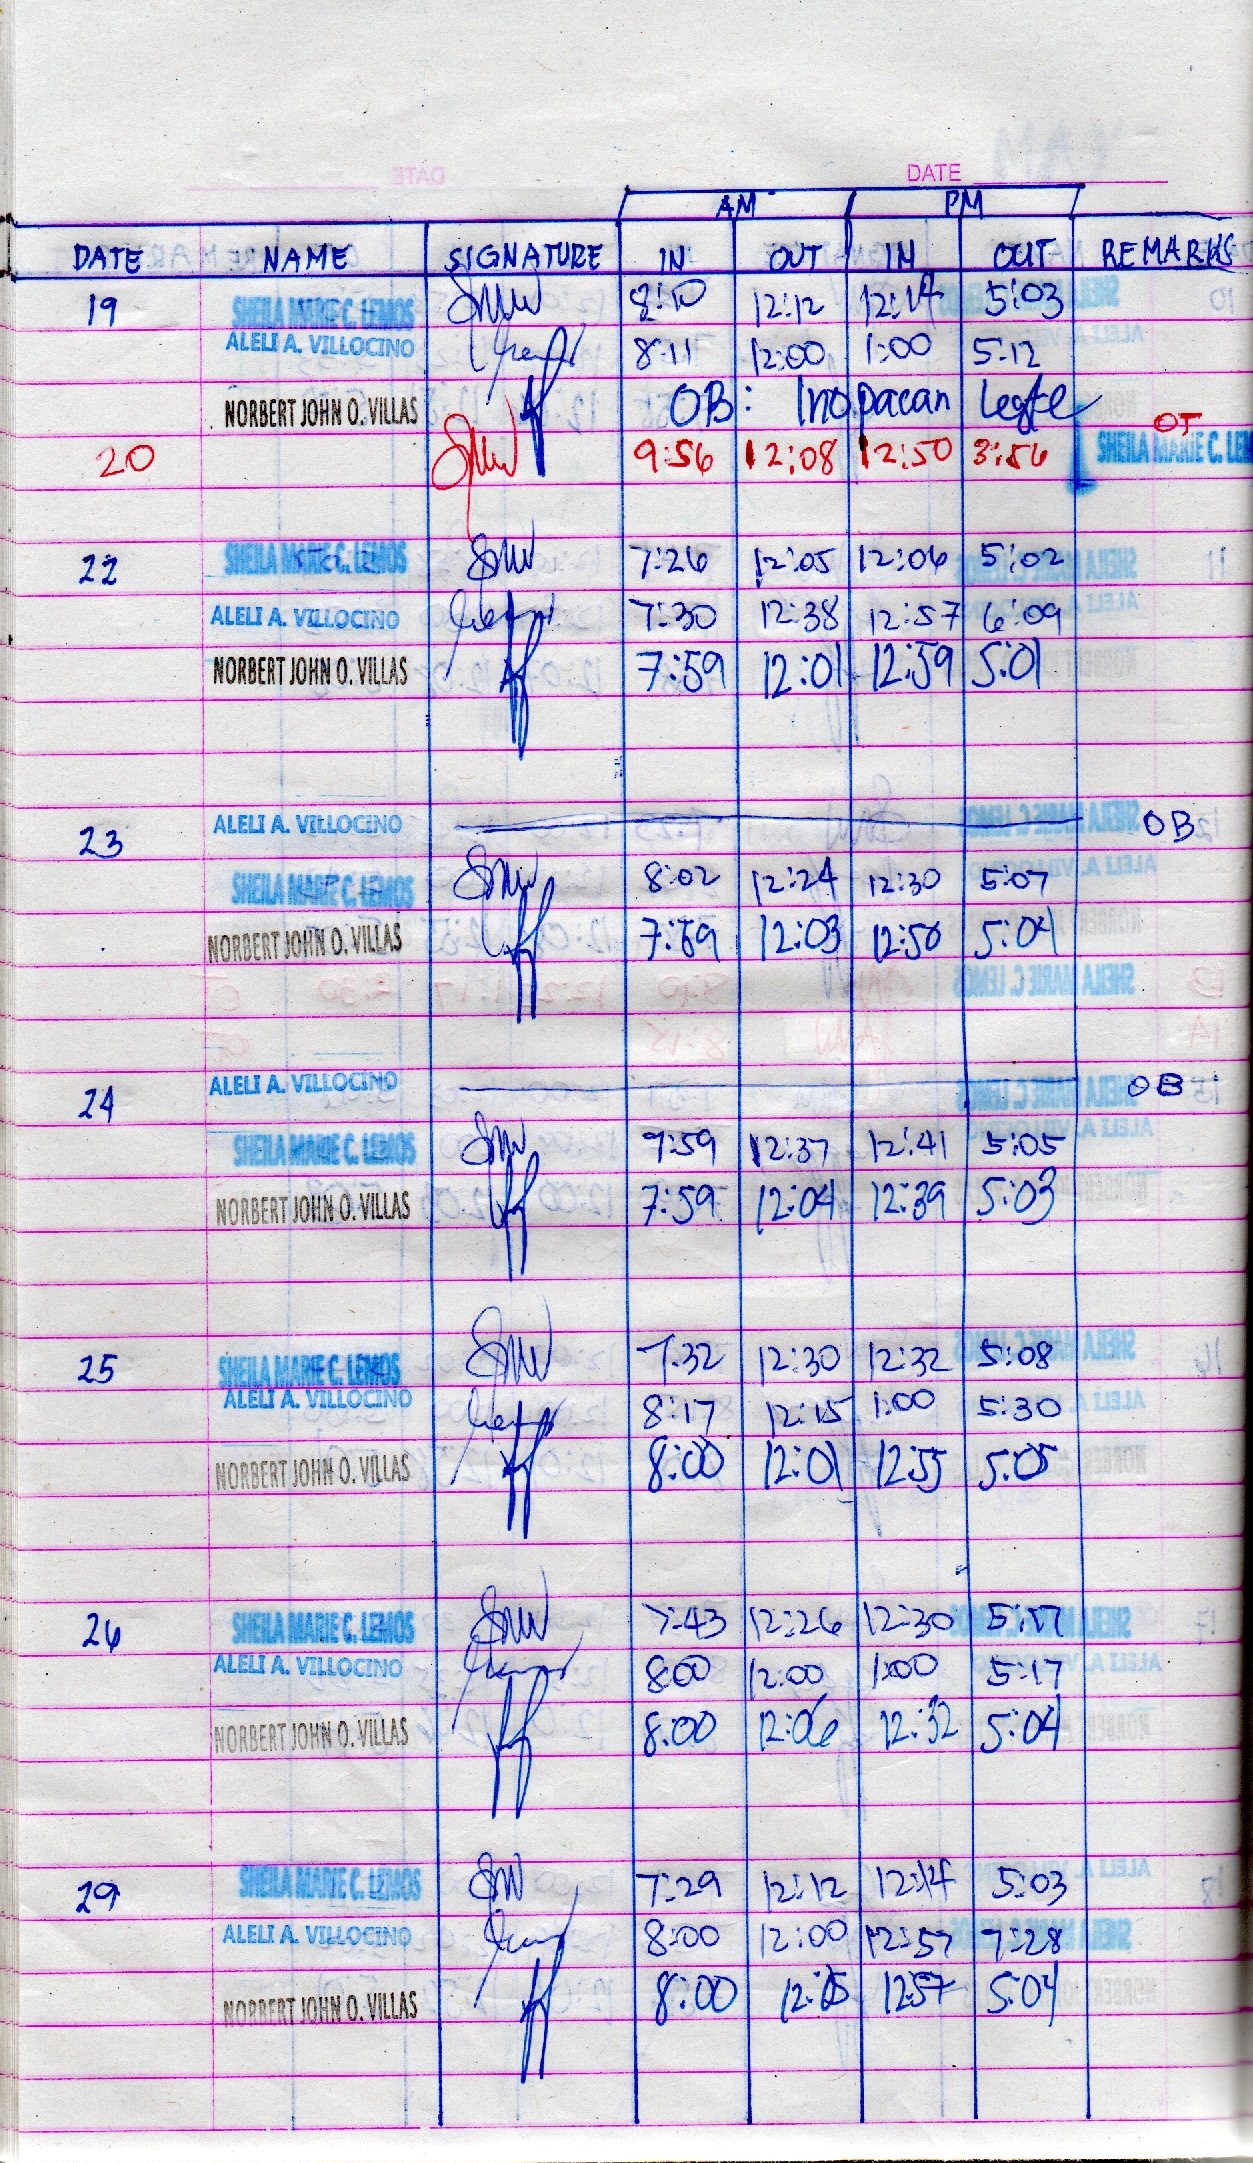 DATE
AM PM
DATE NAME SIGNATURE IN OUT IN OUT REMARKS
19 SHEILA MARIE C. LEMOS 8:10 12:12 12:14 5:03
ALELI A. VILLOCINO 8:11 12:00 1:00 5:12
NORBERT JOHN O. VILLAS OB: Inopacan Leyte
20 9:56 12:08 12:50 3:56 OT
SHEILA MARIE C. LEM
22 SHEILA MARIE C. LEMOS 7:26 12:05 12:06 5:02
ALELI A. VILLOCINO 7:30 12:38 12:57 6:09
NORBERT JOHN O. VILLAS 7:59 12:01 12:59 5:01
23 ALELI A. VILLOCINO OB
SHEILA MARIE C. LEMOS 8:02 12:24 12:30 5:07
NORBERT JOHN O. VILLAS 7:59 12:03 12:50 5:04
24 ALELI A. VILLOCINO OB
SHEILA MARIE C. LEMOS 7:59 12:37 12:41 5:05
NORBERT JOHN O. VILLAS 7:59 12:04 12:39 5:03
25 SHEILA MARIE C. LEMOS 7:32 12:30 12:32 5:08
ALELI A. VILLOCINO 8:17 12:15 1:00 5:30
NORBERT JOHN O. VILLAS 8:00 12:01 12:55 5:05
26 SHEILA MARIE C. LEMOS 7:43 12:26 12:30 5:17
ALELI A. VILLOCINO 8:00 12:00 1:00 5:17
NORBERT JOHN O. VILLAS 8:00 12:06 12:32 5:04
29 SHEILA MARIE C. LEMOS 7:29 12:12 12:14 5:03
ALELI A. VILLOCINO 8:00 12:00 12:57 7:28
NORBERT JOHN O. VILLAS 8:00 12:57 5:04